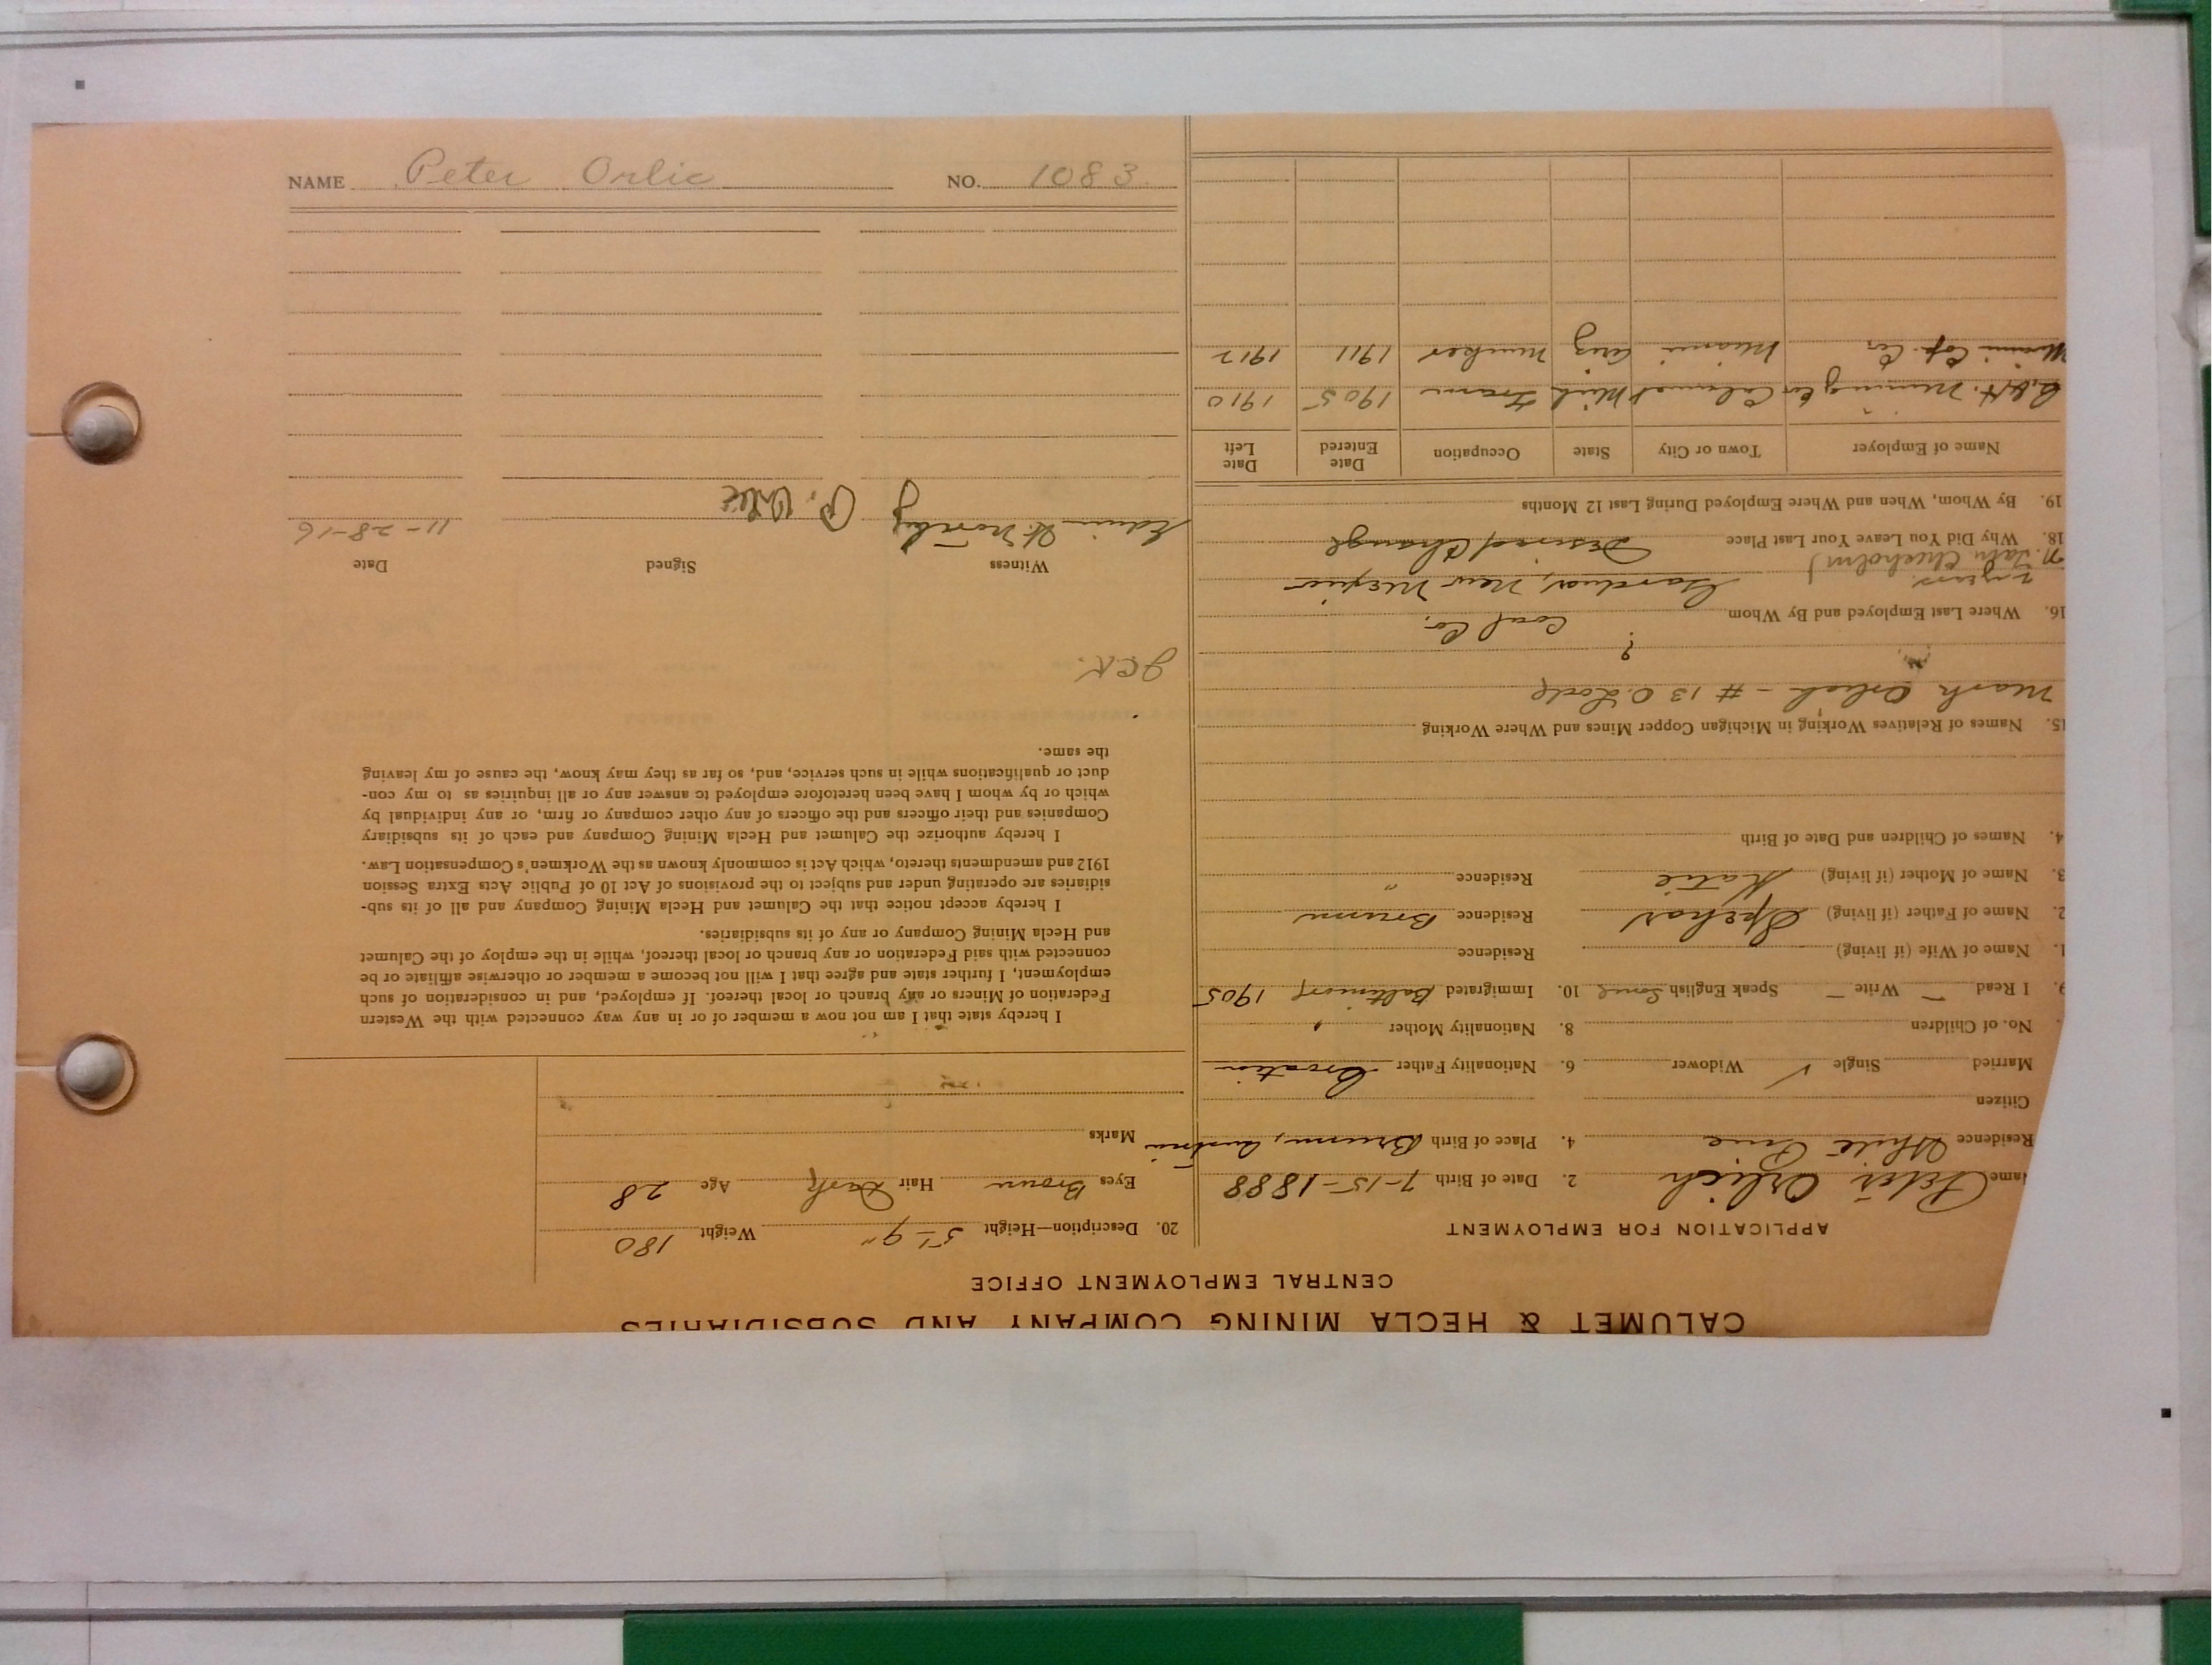 CALUMET & HECLA MINING COMPANY AND SUBSIDIARIES
CENTRAL EMPLOYMENT OFFICE
APPLICATION FOR EMPLOYMENT
ame Peter Orlich 2. Date of Birth 7-15-1888
Residence White Pine 4. Place of Birth Austria
Citizen
Married Single ✓ Widower 6. Nationality Father Croatian
No. of Children 8. Nationality Mother
9. I Read — Write — Speak English Some 10. Immigrated Baltimore 1905
1. Name of Wife (if living) Residence
2. Name of Father (if living) Residence
3. Name of Mother (if living) Katie Residence "
4. Names of Children and Date of Birth
15. Names of Relatives Working in Michigan Copper Mines and Where Working
Orlich - # 13
?
16. Where Last Employed and By Whom Coal Co.
2 years. Gardner, New Mexico
18. Why Did You Leave Your Last Place Desired Change
19. By Whom, When and Where Employed During Last 12 Months
Name of Employer Town or City State Occupation Date Entered Date Left
C. & H. Mining Co Calumet Mich Tram 1905 1910
Miami Cop. Co. Miami Ariz mucker 1911 1912
20. Description—Height 5'-9" Weight 180
Eyes Brown Hair Dark Age 28
Marks
I hereby state that I am not now a member of or in any way connected with the Western
Federation of Miners or any branch or local thereof. If employed, and in consideration of such
employment, I further state and agree that I will not become a member or otherwise affiliate or be
connected with said Federation or any branch or local thereof, while in the employ of the Calumet
and Hecla Mining Company or any of its subsidiaries.
I hereby accept notice that the Calumet and Hecla Mining Company and all of its sub-
sidiaries are operating under and subject to the provisions of Act 10 of Public Acts Extra Session
1912 and amendments thereto, which Act is commonly known as the Workmen's Compensation Law.
I hereby authorize the Calumet and Hecla Mining Company and each of its subsidiary
Companies and their officers and the officers of any other company or firm, or any individual by
which or by whom I have been heretofore employed to answer any or all inquiries as to my con-
duct or qualifications while in such service, and, so far as they may know, the cause of my leaving
the same.
Witness Signed Date
Edwin P. Orlic 11-28-16
NAME Peter Orlic NO. 1083